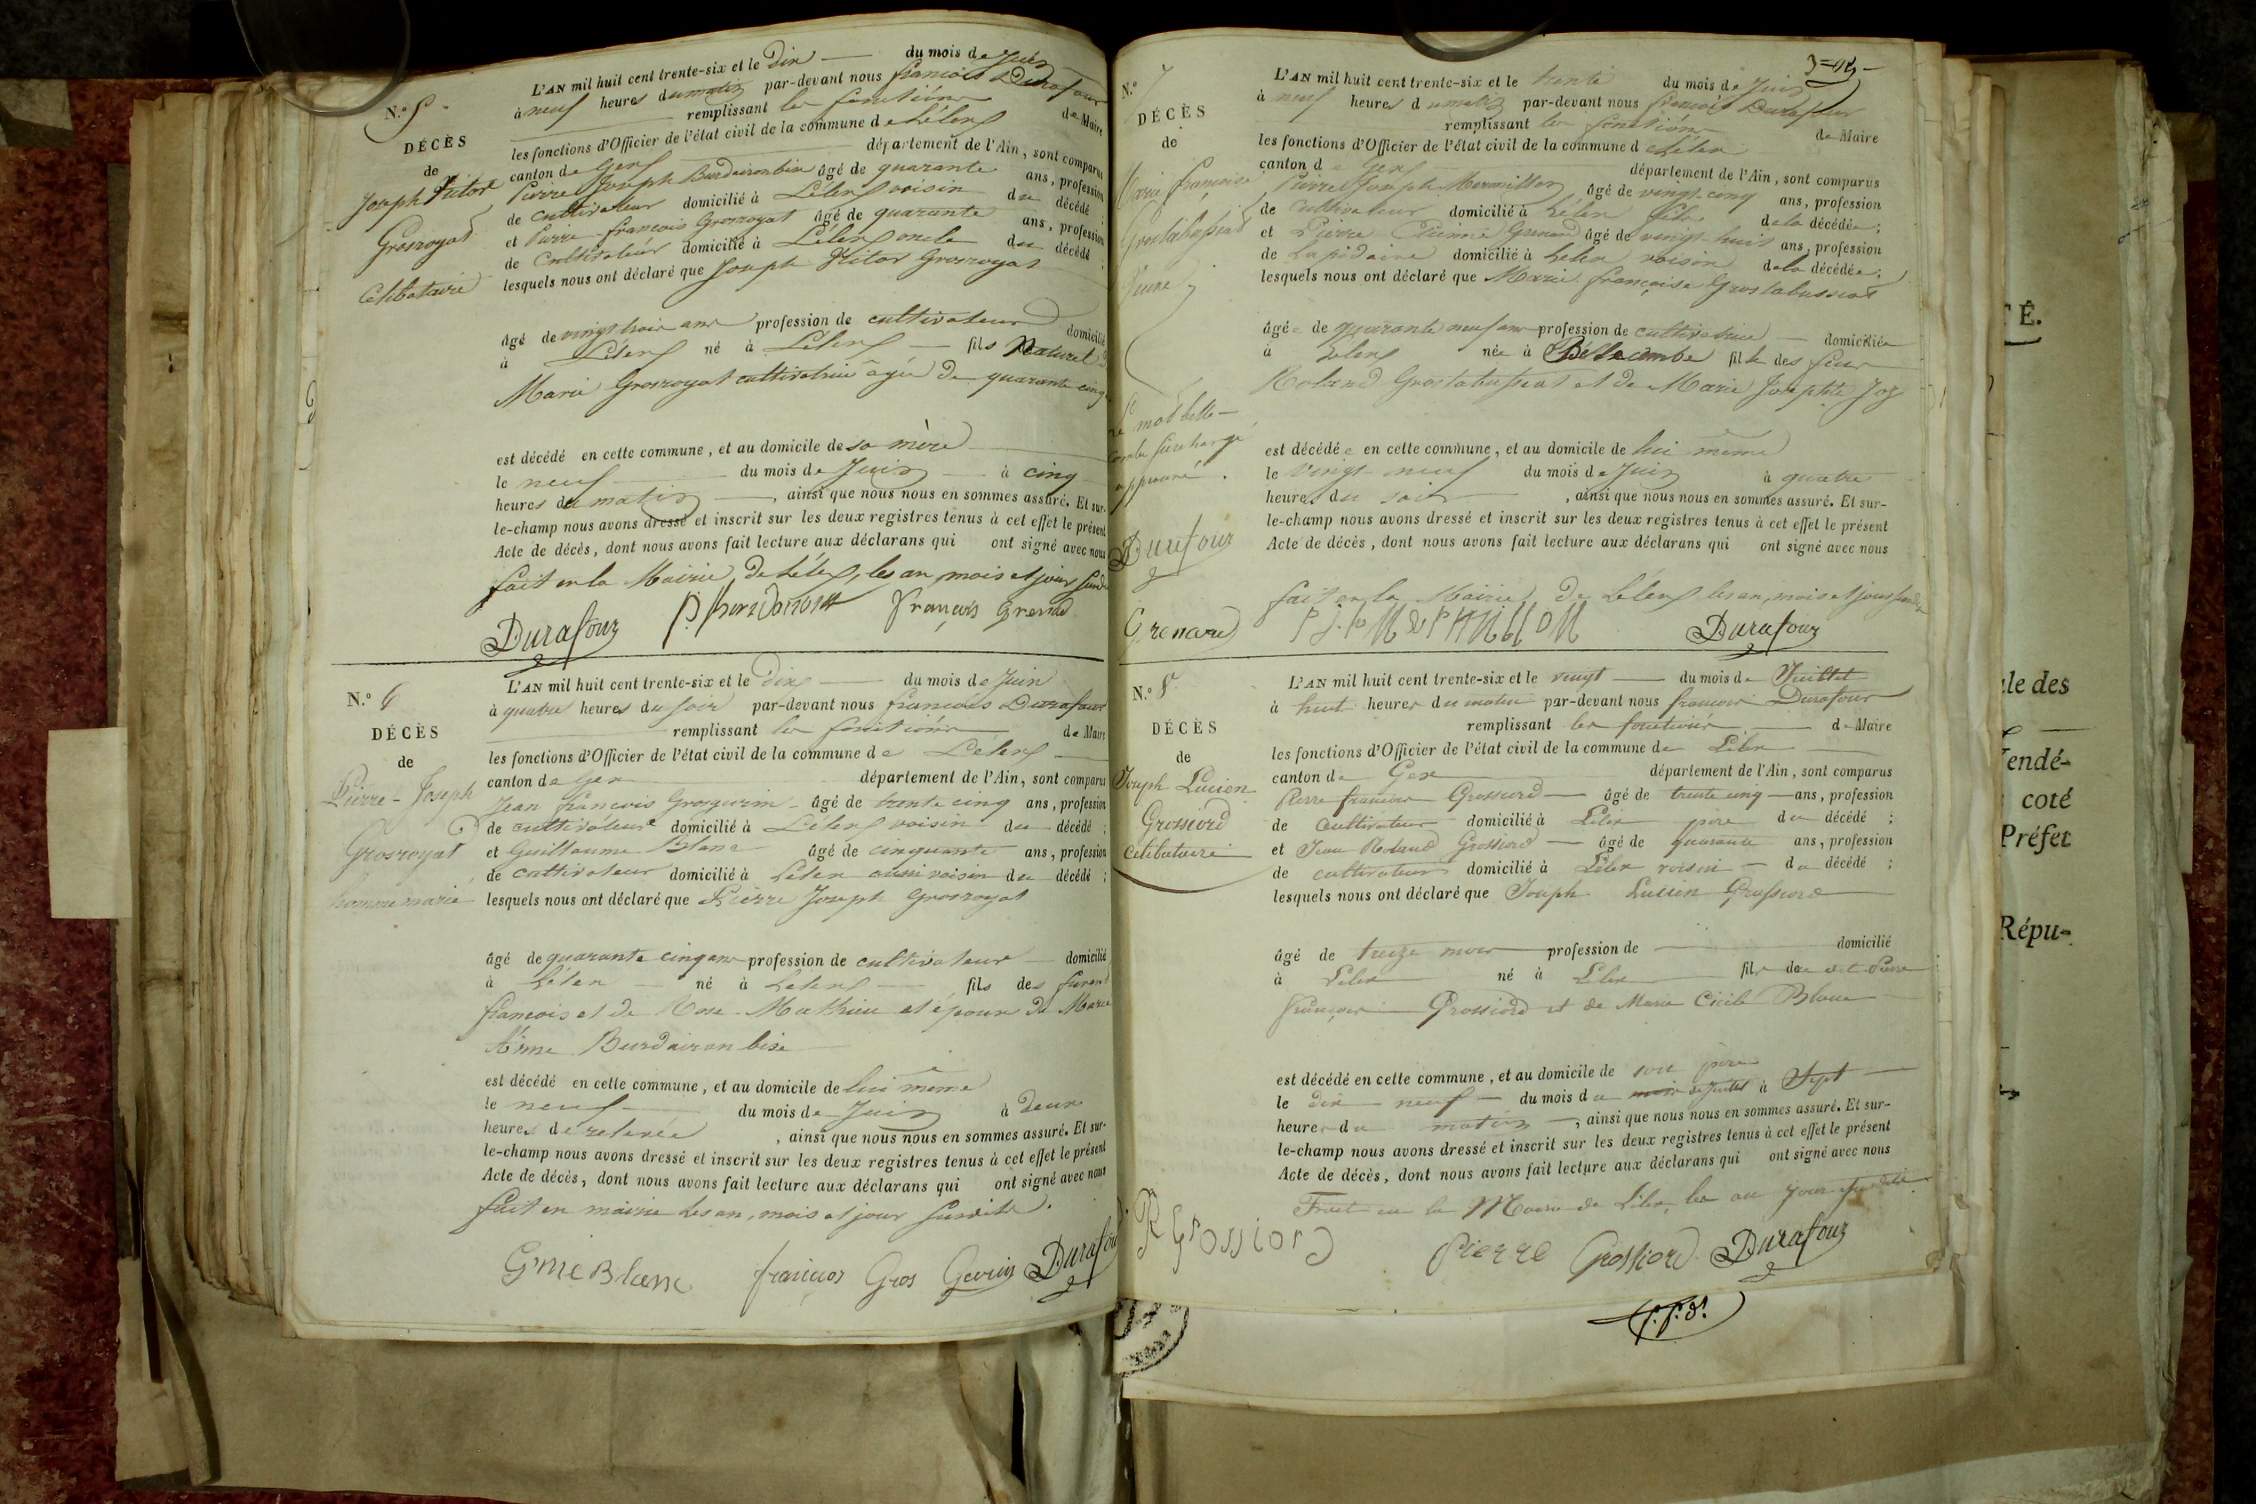 N.º 5
DÉCÈS
de
Joseph Victor
Grosroyat
Célibataire
L'AN mil huit cent trente-six et le Dix du mois de Juin
à neuf heures du matin par-devant nous françois Durafour
remplissant les fonctions de Maire
les fonctions d'Officier de l'état civil de la commune de Lélex
canton de Gex département de l'Ain, sont comparus
Pierre Joseph Burdaironbise âgé de quarante ans, profession
de cultivateur domicilié à Lélex voisin du décédé ;
et Pierre françois Grosroyat âgé de quarante ans, profession
de cultivateur domicilié à Lélex oncle du décédé ;
lesquels nous ont déclaré que Joseph Victor Grosroyat
âgé de vingt trois ans profession de cultivateur domicilié
à Lélex né à Lélex fils Naturel de
Marie Grosroyat cultivatrice âgée de quarante cinq
est décédé en cette commune, et au domicile de sa mère
le neuf du mois de Juin à cinq
heures du matin, ainsi que nous nous en sommes assuré. Et sur-
le-champ nous avons dressé et inscrit sur les deux registres tenus à cet effet le présent
Acte de décès, dont nous avons fait lecture aux déclarans qui ont signé avec nous
fait en la Mairie de Lélex, les an, mois et jour susdit
Durafour françois
N.º 6
DÉCÈS
de
Pierre-Joseph
Grosroyat
homme marié
L'AN mil huit cent trente-six et le Dix du mois de Juin
à quatre heures du soir par-devant nous françois Durafour
remplissant les fonctions de Maire
les fonctions d'Officier de l'état civil de la commune de Lélex
canton de Gex département de l'Ain, sont comparus
Jean françois Grosgurin âgé de trente cinq ans, profession
de cultivateur domicilié à Lélex voisin du décédé ;
et Guillaume Blanc âgé de cinquante ans, profession
de cultivateur domicilié à Lélex aussi voisin du décédé ;
lesquels nous ont déclaré que Pierre Joseph Grosroyat
âgé de quarante cinq ans profession de cultivateur domicilié
à Lélex né à Lélex fils des furent
françois et de Rose Mathieu et époux de Marie
Anne Burdairon bise
est décédé en cette commune, et au domicile de lui même
le neuf du mois de Juin à deux
heures de relevée, ainsi que nous nous en sommes assuré. Et sur-
le-champ nous avons dressé et inscrit sur les deux registres tenus à cet effet le présent
Acte de décès, dont nous avons fait lecture aux déclarans qui ont signé avec nous
fait en mairie les an, mois et jour susdits.
Gme Blanc françois Gros Gurin Durafour
N.º 7
DÉCÈS
de
Marie françoise
Grostabussiat
le mot belle-
combe surchargé
approuvé.
Durafour
Grenard
L'AN mil huit cent trente-six et le trente du mois de Juin
à neuf heures du matin par-devant nous françois Durafour
remplissant les fonctions de Maire
les fonctions d'Officier de l'état civil de la commune de Lélex
canton de Gex département de l'Ain, sont comparus
Pierre Joseph Mermillon âgé de vingt-cinq ans, profession
de cultivateur domicilié à Lélex fils de la décédée ;
et Pierre Etienne Grenard âgé de vingt-huit ans, profession
de Lapidaire domicilié à Lélex voisin de la décédée ;
lesquels nous ont déclaré que Marie françoise Grostabussiat
âgée de quarante neuf ans profession de cultivatrice domiciliée
à Lélex née à Bellecombe fille des feux
Roland Grostabussiat et de Marie Josephte Joz
est décédée en cette commune, et au domicile de lui même
le vingt-neuf du mois de Juin à quatre
heures du soir, ainsi que nous nous en sommes assuré. Et sur-
le-champ nous avons dressé et inscrit sur les deux registres tenus à cet effet le présent
Acte de décès, dont nous avons fait lecture aux déclarans qui ont signé avec nous
fait en la Mairie de Lélex les an, mois et jour susdits
Durafour
N.º 8
DÉCÈS
de
Joseph Lucien
Grossiord
célibataire
L'AN mil huit cent trente-six et le vingt du mois de Juillet
à huit heures du matin par-devant nous françois Durafour
remplissant les fonctions de Maire
les fonctions d'Officier de l'état civil de la commune de Lélex
canton de Gex département de l'Ain, sont comparus
Pierre françois Grossiord âgé de trente cinq ans, profession
de cultivateur domicilié à Lélex père du décédé ;
et Jean Roland Grossiord âgé de quarante ans, profession
de cultivateur domicilié à Lélex voisin du décédé ;
lesquels nous ont déclaré que Joseph Lucien Grossiord
âgé de treize mois profession de domicilié
à Lélex né à Lélex fils de Pierre
françois Grossiord et de Marie Cécile Blanc
est décédé en cette commune, et au domicile de son père
le dix neuf du mois de Juillet à Sept
heures du matin, ainsi que nous nous en sommes assuré. Et sur-
le-champ nous avons dressé et inscrit sur les deux registres tenus à cet effet le présent
Acte de décès, dont nous avons fait lecture aux déclarans qui ont signé avec nous
Fait en la Mairie de Lélex, les an jour susdits
R Grossiord Pierre Grossiord Durafour
TÉ.
ale des
endé-
coté
Préfet
Répu-